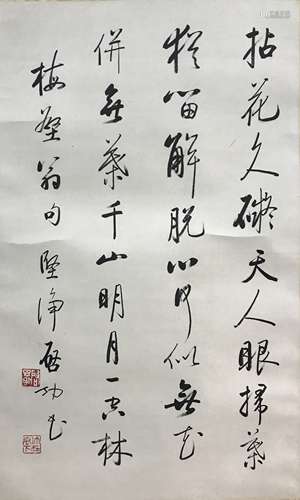 拈花久礙天人眼掃葉
猶留解脫心何似無花
併無葉千山明月一空林
梅壑翁句 堅淨啓功書